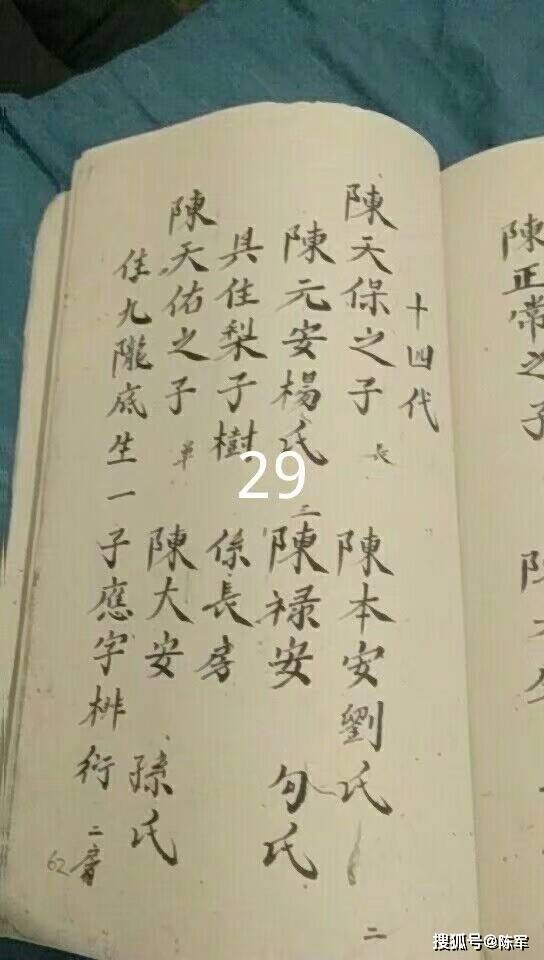 陳正常之子
陳
十四代
陳天保之子 長 陳本安劉氏
二
陳元安楊氏 二 陳禄安 勾氏
具住梨子樹 係長房
陳天佑之子 單 陳大安 孫氏
住九隴底生一子應字排衍 二房
62
29
搜狐号@陈军